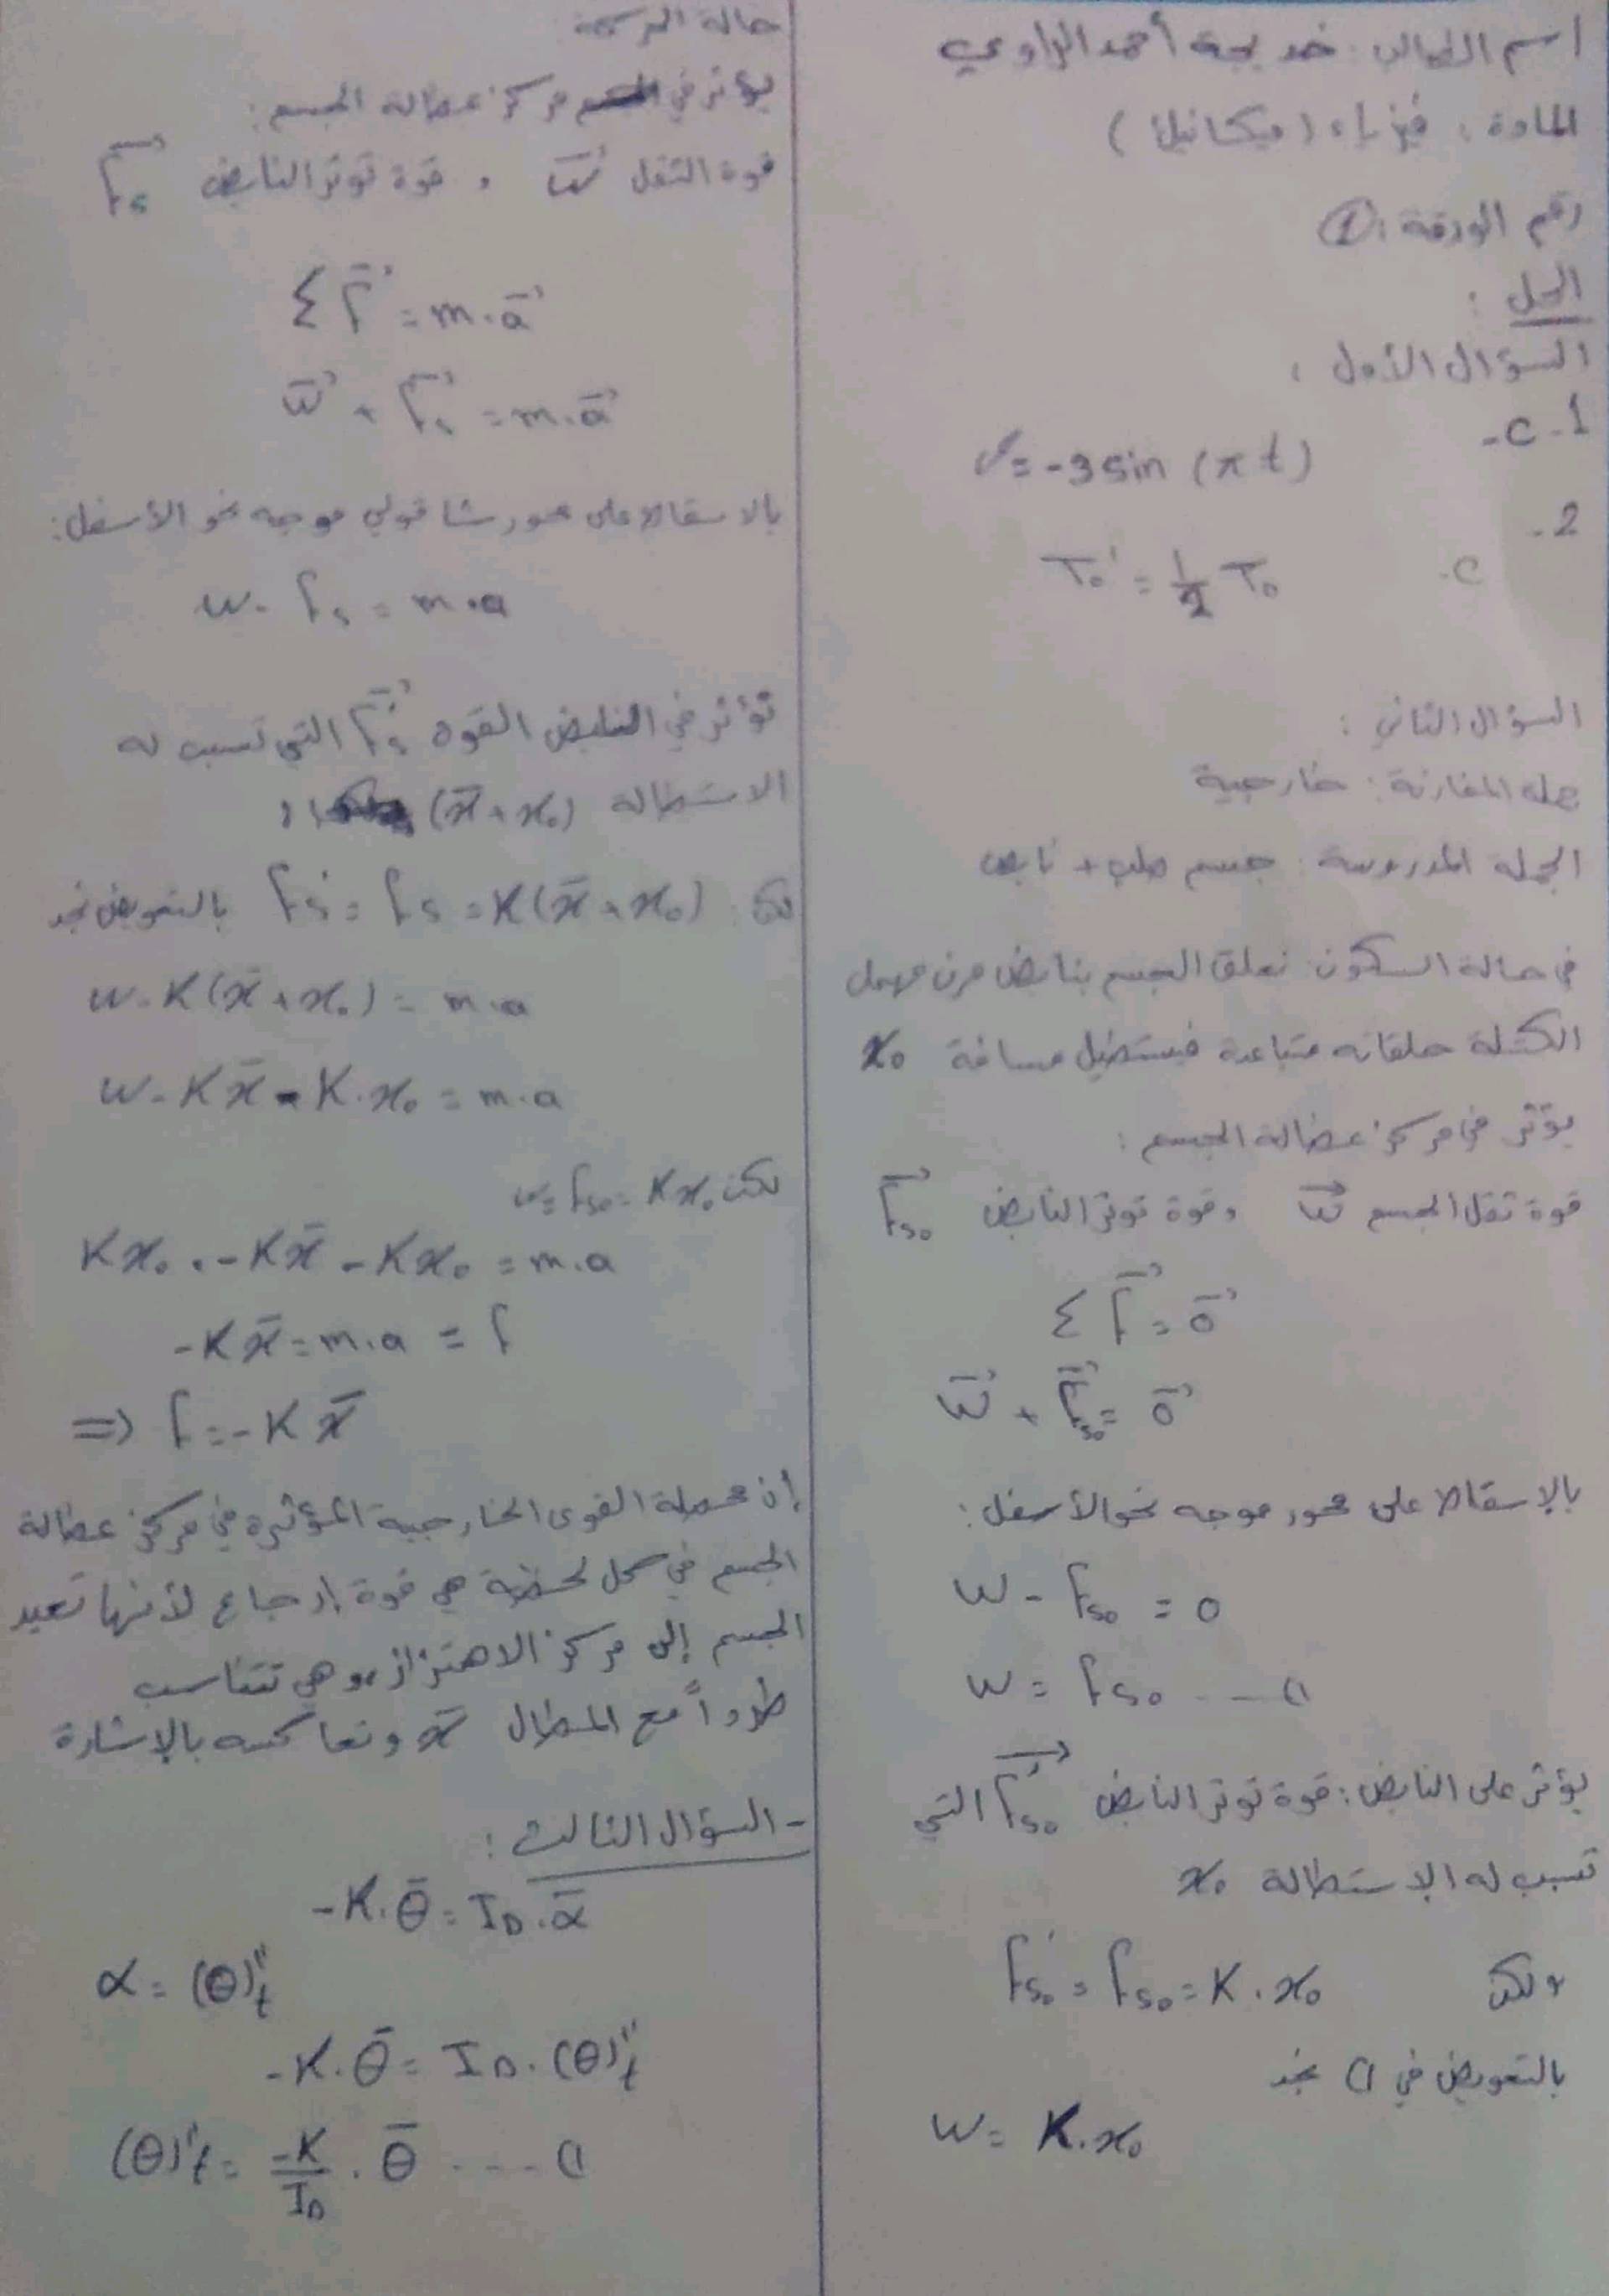 اسم الطالب: خديجة أحمد الراوي
المادة: فيزياء (ميكانيك)
رقم الورقة: ①
الحل:
السؤال الأول:
1- c-
v = -3 sin (πt)
2-
c- T₀' = 1/2 T₀
السؤال الثاني:
جملة المقارنة: خارجية
الجملة المدروسة: جسم صلب + نابض
في حالة السكون: نعلق الجسم بنابض مرن مهمل
الكتلة حلقاته متباعدة فيستطيل مسافة x₀
يؤثر في مركز عطالة الجسم:
قوة ثقل الجسم W⃗ ، وقوة توتر النابض F⃗s₀
Σ F⃗ = 0⃗
W⃗ + F⃗s₀ = 0⃗
بالإسقاط على محور موجه نحو الأسفل:
W - Fs₀ = 0
W = Fs₀ --- ①
يؤثر على النابض: قوة توتر النابض F⃗'s₀ التي
تسبب له الإستطالة x₀
ولكن F's₀ = Fs₀ = K . x₀
بالتعويض في ① نجد
W = K . x₀
حالة الحركة
يؤثر في مركز عطالة الجسم:
قوة الثقل W⃗ ، قوة توتر النابض F⃗s
Σ F⃗ = m . a⃗
W⃗ + F⃗s = m . a⃗
بالاسقاط على محور شاقولي موجه نحو الأسفل:
W - Fs = m . a
تؤثر في النابض القوة F⃗'s التي تسبب له
الاستطالة (x̄ + x₀)
لكن: F's = Fs = K(x̄ + x₀) بالتعويض نجد
W - K(x̄ + x₀) = m . a
W - K x̄ - K . x₀ = m . a
لكن W = Fs₀ = K x₀
K x₀ . - K x̄ - K x₀ = m . a
- K x̄ = m . a = F
⇒ F = - K x̄
إن محصلة القوى الخارجية المؤثرة في مركز عطالة
الجسم في كل لحظة هي قوة إرجاع لأنها تعيد
الجسم إلى مركز الاهتزاز وهي تتناسب
طرداً مع المطال x̄ وتعاكسه بالإشارة
- السؤال الثالث:
- K . θ̄ = I_Δ . ᾱ
α = (θ)''t
- K . θ̄ = I_Δ . (θ)''t
(θ)''t = -K/I_Δ . θ̄ ---- ①